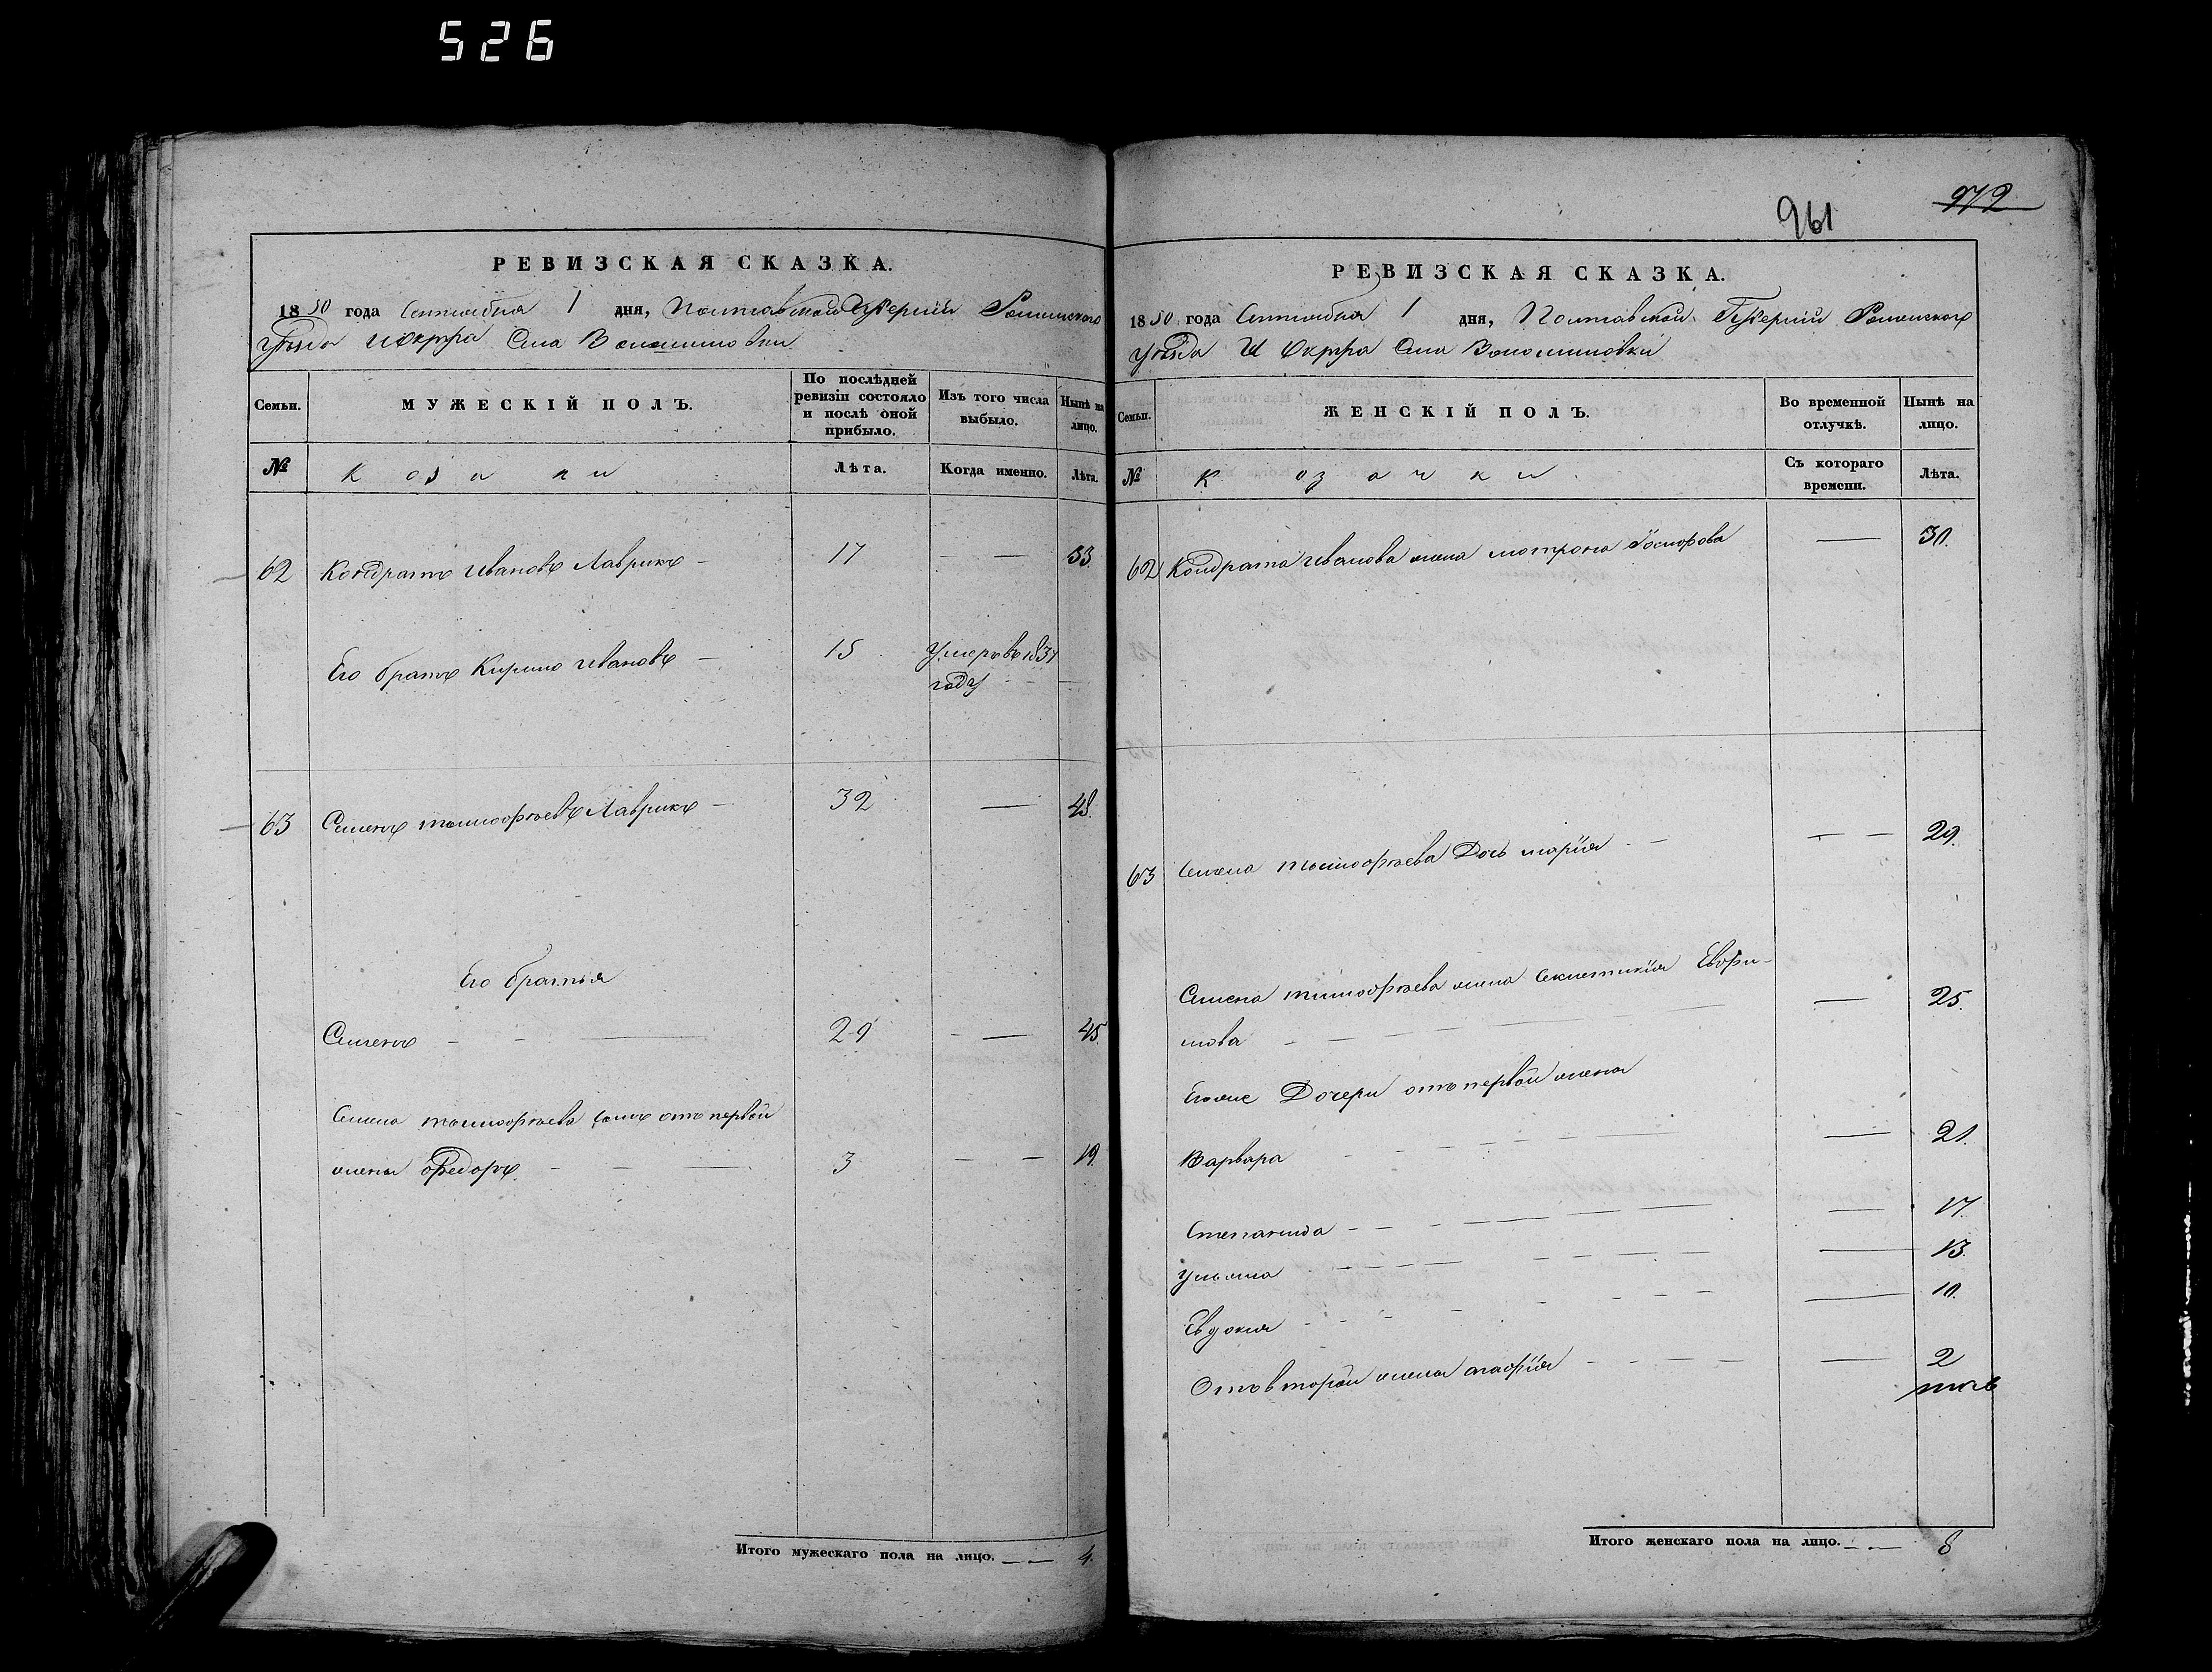 526
РЕВИЗСКАЯ СКАЗКА.
1850 года Сентября 1 дня, Полтавской Губернии Роменского
уѣзда Села Волошиновки
Семьи. МУЖЕСКІЙ ПОЛЪ. По послѣдней ревизіи состояло и послѣ оной прибыло. Изъ того числа выбыло. Нынѣ на лицо.
№ Козаки Лѣта. Когда именно. Лѣта.
62 Кондратъ Ивановъ Лаврикъ — 17 — — 33.
Его братъ Кирило Ивановъ — 15 Умеръ въ 1837
году — —
63 Семенъ тимофѣевъ Лаврикъ — 32 — 48.
Его братья
Семенъ — — — 29 — — 45.
Семена тимофѣева сынъ отъ первой
жены Федоръ. — — — 3 — — 19.
Итого мужескаго пола на лицо. — — 4.
961
972
РЕВИЗСКАЯ СКАЗКА.
1850 года Сентября 1 дня, Полтавской Губерніи Роменского
уѣзда Села Волошиновки
Семьи. ЖЕНСКІЙ ПОЛЪ. Во временной отлучкѣ. Нынѣ на лицо.
№ Козачки Съ котораго времени. Лѣта.
62 Кондрата Иванова жена мотрона — 30.
63 Семена тимофѣева Дочь марія — — — 29.
Семена тимофѣева жена Евфи-
мова — — — 25.
Егоже Дочери отъ первой жены
Варвара — — — 21.
Степанида — — — 17.
Ульяна — — — 13.
Евдокия — — — 10.
Отъ второй жены агафія — — — 2
Итого женскаго пола на лицо. — — 8